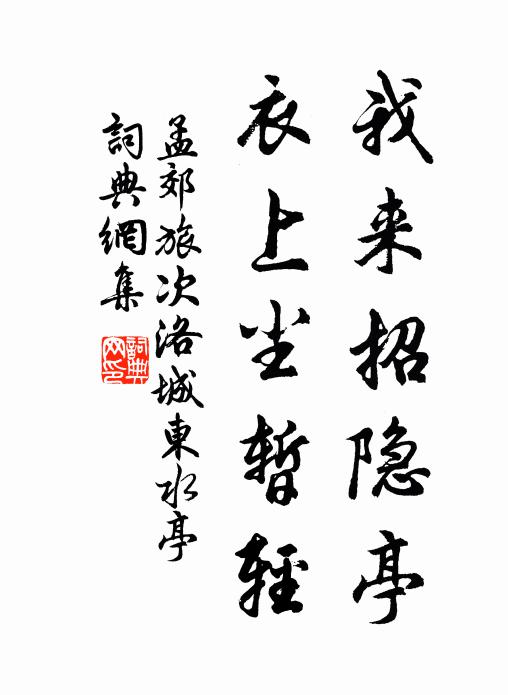 我来招隐亭
衣上尘暂輕
孟郊旅次洛城東水亭
詞典網集
詞典網印